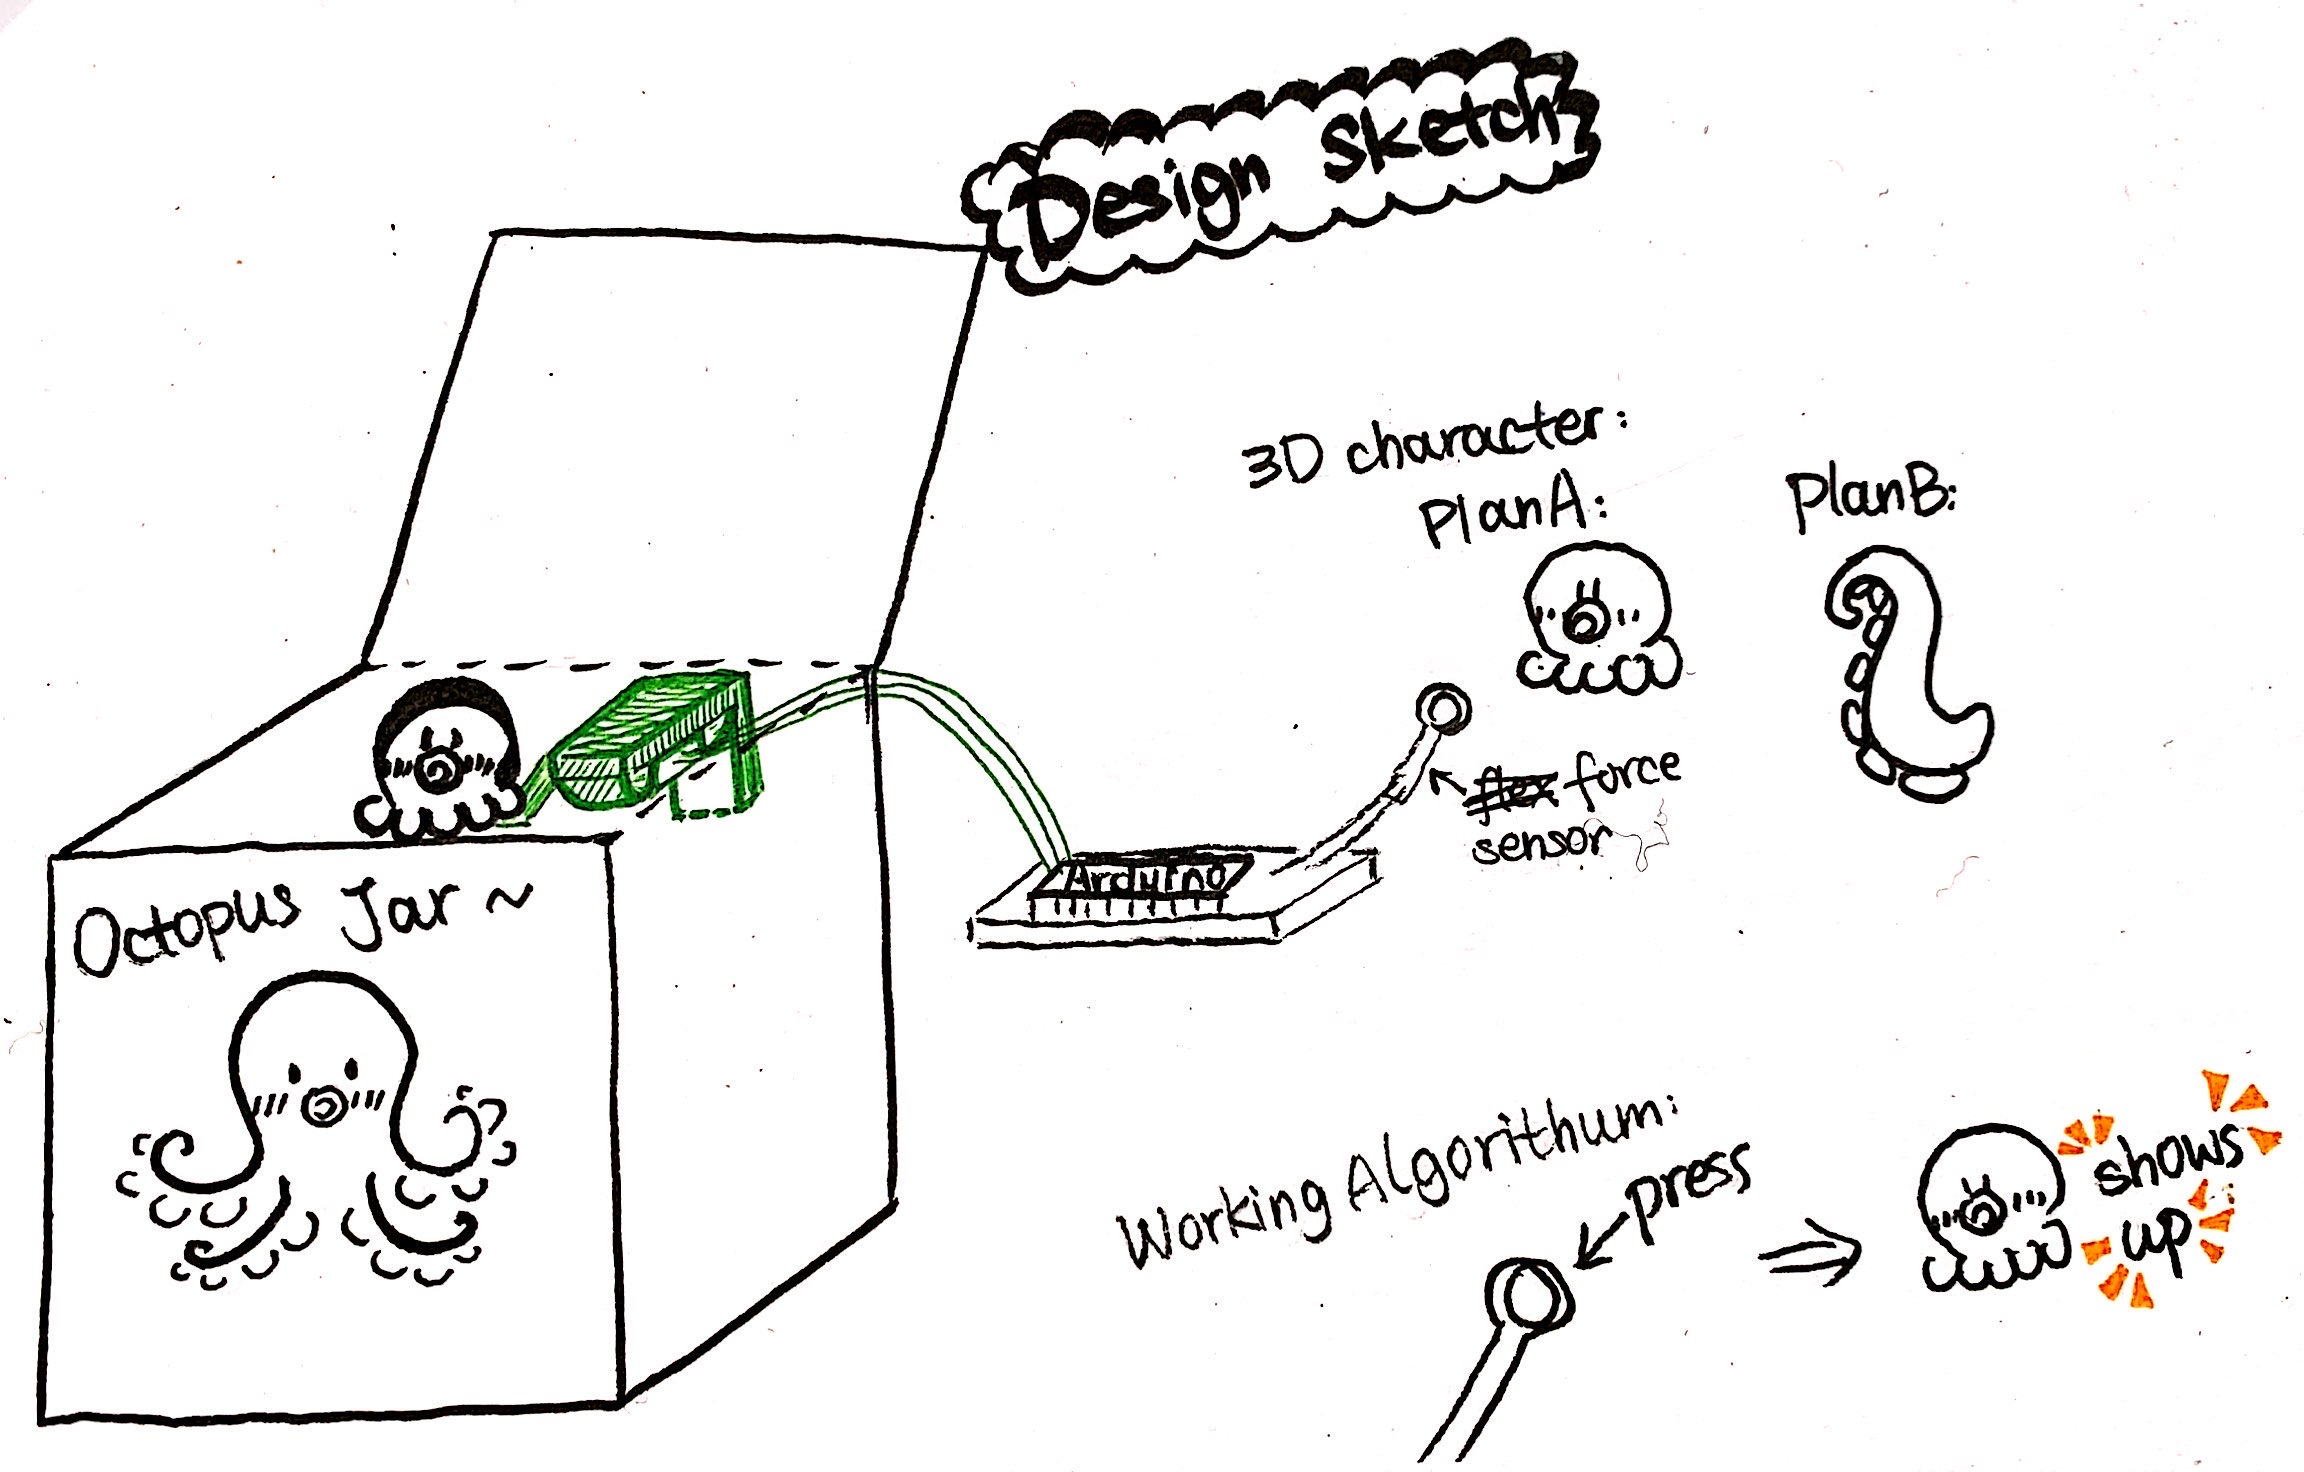 Design Sketch
3D character:
Plan A:
Plan B:
flex force
sensor
Arduino
Octopus Jar ~
Working Algorithum:
press
shows
up